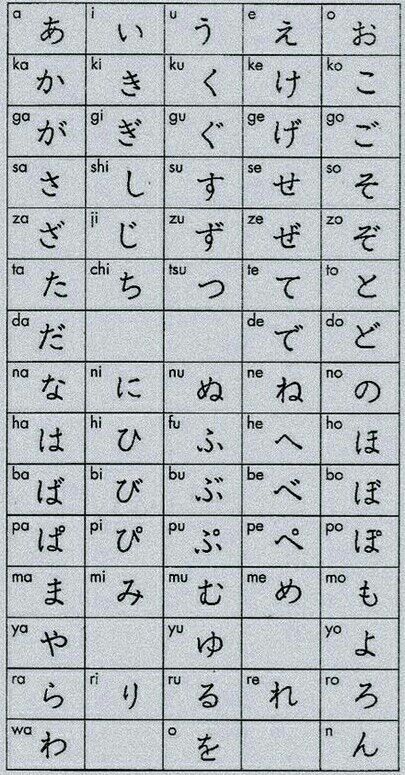 a あ i い u う e え o お
ka か ki き ku く ke け ko こ
ga が gi ぎ gu ぐ ge げ go ご
sa さ shi し su す se せ so そ
za ざ ji じ zu ず ze ぜ zo ぞ
ta た chi ち tsu つ te て to と
da だ de で do ど
na な ni に nu ぬ ne ね no の
ha は hi ひ fu ふ he へ ho ほ
ba ば bi び bu ぶ be べ bo ぼ
pa ぱ pi ぴ pu ぷ pe ぺ po ぽ
ma ま mi み mu む me め mo も
ya や yu ゆ yo よ
ra ら ri り ru る re れ ro ろ
wa わ o を n ん